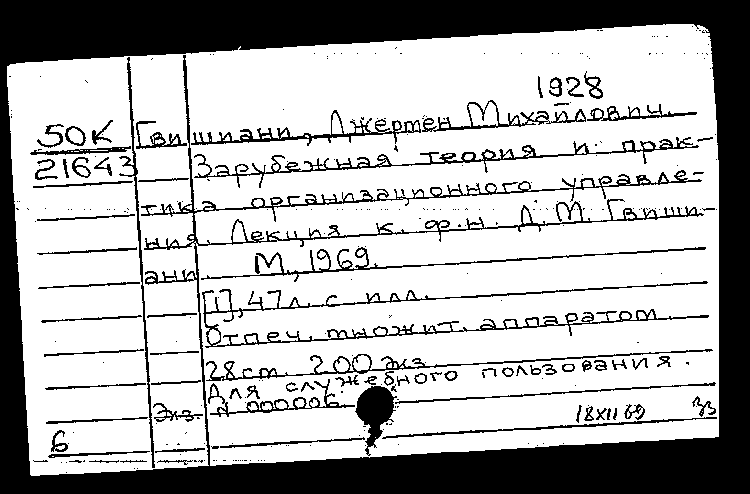 1928
50К Гвишиани, Джермен Михайлович.
21643 Зарубежная теория и прак-
тика организационного управле-
ния. Лекция к. ф.н. Д.М. Гвиши-
ани. М., 1969.
[1], 47 л. с илл.
Отпеч. множит. аппаратом.
28 см. 200 экз.
Для служебного пользования.
Экз. № 000006
18 XII 69
6